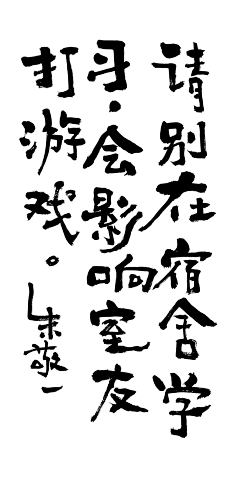 请别在宿舍学
习，会影响室友
打游戏。
朱敬一